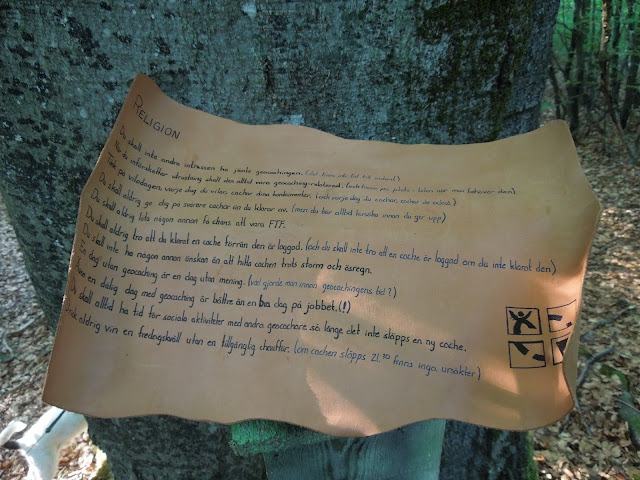 RELIGION
Du skall inte andra intressen ha jämte geocachingen. (det finns inte tid till andra!)
När du införskaffar utrustning skall den alltid vara geocaching-relaterad. (och finnas på plats i bilen när man behöver den)
Tänk på vilodagen, varje dag du vilar, cachar dina konkurrenter. (och varje dag du cachar, cachar de också)
Du skall aldrig ge dig på svårare cachar än du klarar av. (men du bör alltid försöka innan du ger upp)
Du skall aldrig låta någon annan få chans att vara FTF.
Du skall aldrig tro att du klarat en cache förrän den är loggad. (och du skall inte tro att en cache är loggad om du inte klarat den)
Du skall inte ha någon annan önskan än att hitta cachen trots storm och ösregn.
En dag utan geocaching är en dag utan mening. (vad gjorde man innan geocachingens tid?)
även en dålig dag med geocaching är bättre än en bra dag på jobbet. (!)
Du skall alltid ha tid för sociala aktiviteter med andra geocachare så länge det inte släpps en ny cache.
Drick aldrig vin en fredagskväll utan en tillgänglig chaufför. (om cachen släpps 21.30 finns inga ursäkter)